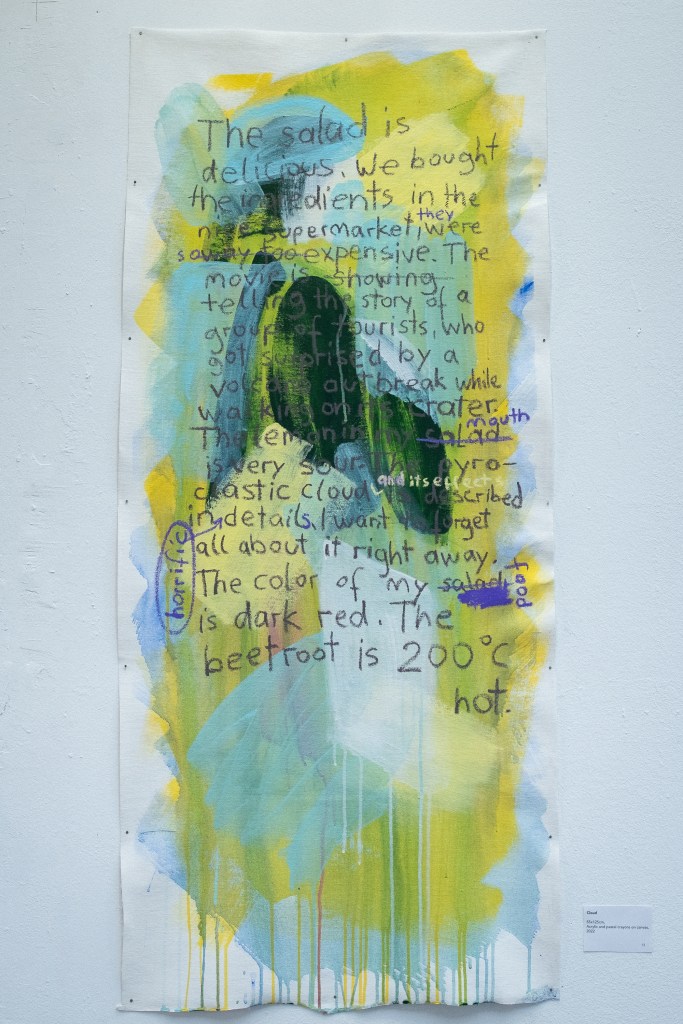 The salad is
delicious. We bought
the ingredients in the
nice supermarket, they were
so way too expensive. The
movie is showing
telling the story of a
group of tourists, who
got surprised by a
volcano outbreak while
walking on its crater.
The lemon in my salad mouth
is very sour. The pyro-
clastic cloud and its effects is described
in horrific details. I want to forget
all about it right away.
The color of my salad poop
is dark red. The
beetroot is 200°C
hot.
Cloud